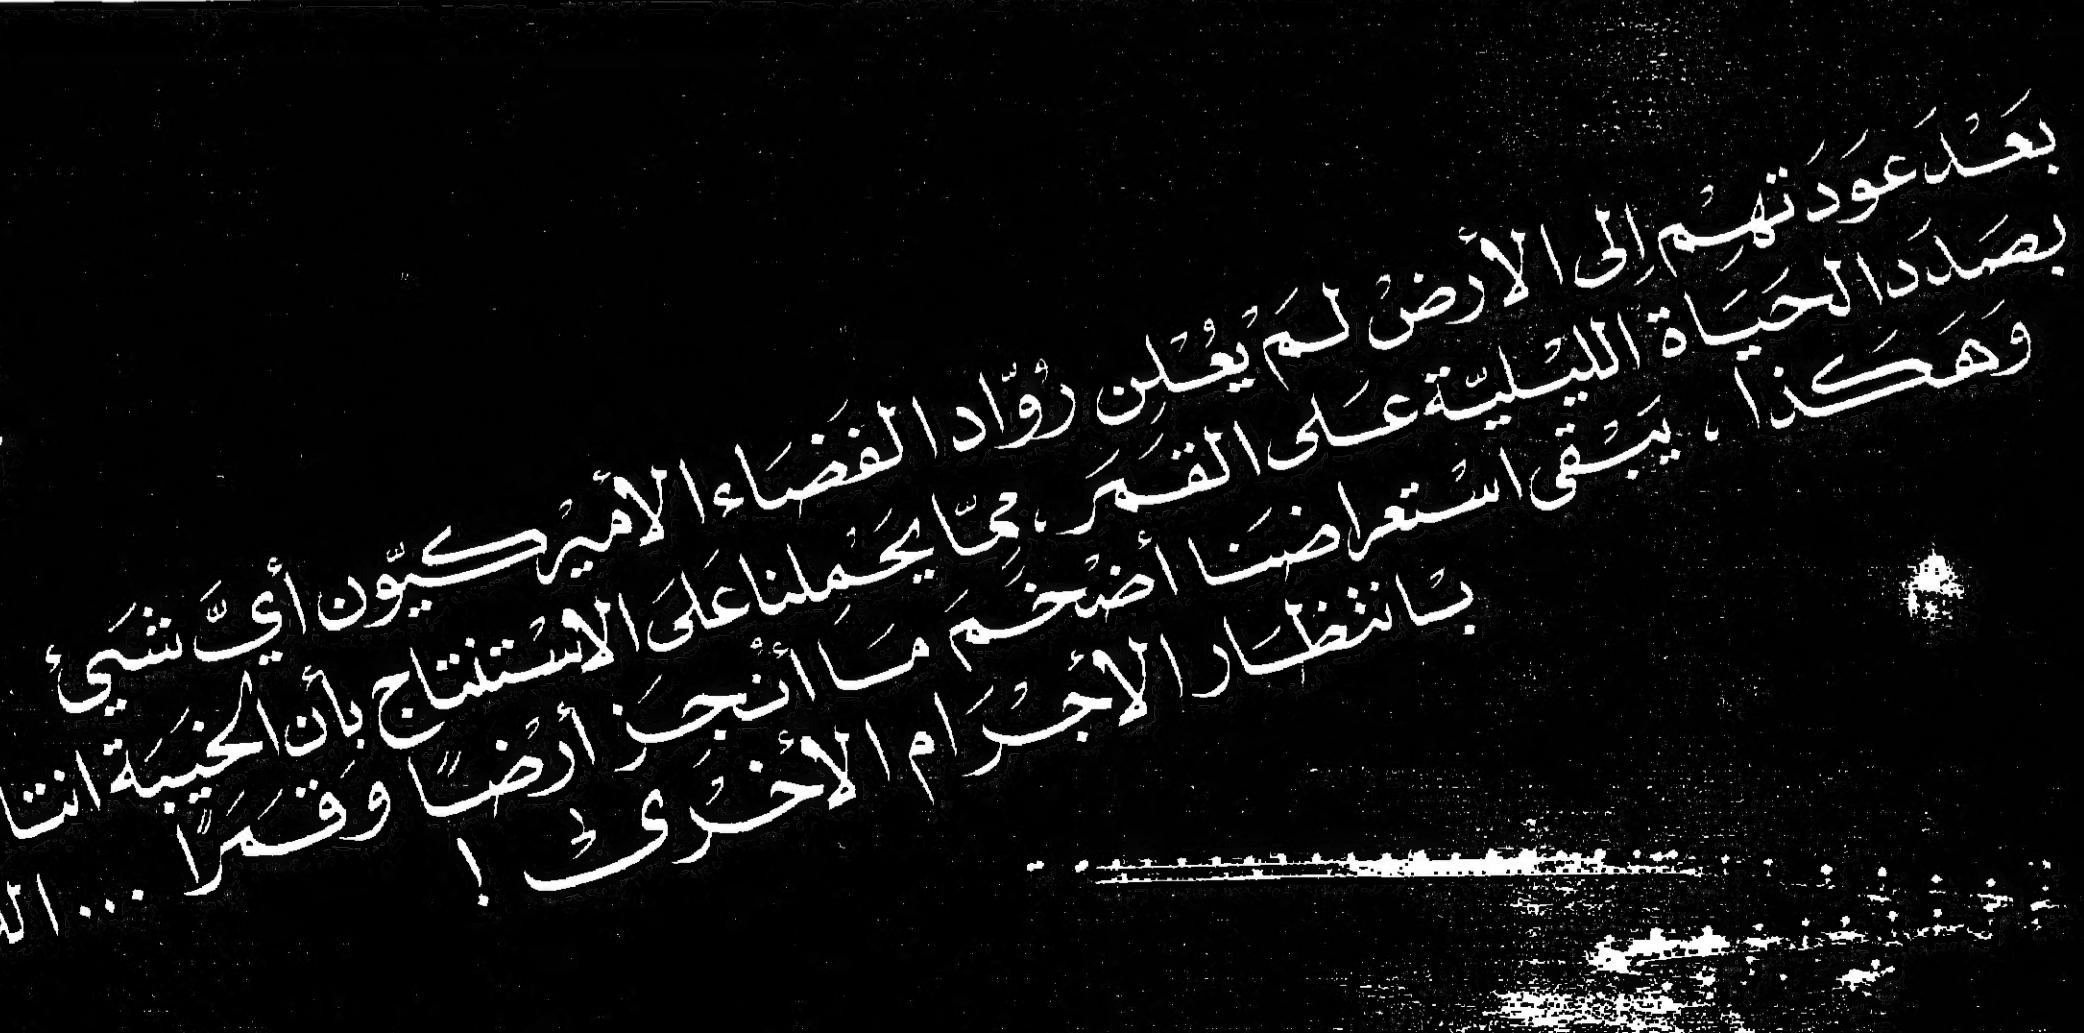 بَعْدَ عَوَدَتهِمْ إِلى الأرضْ لَمْ يُعْلِن رُوّاد الفَضَاء الأميرْكيّون أيَّ شَيئ
بصَدَد الحَيَاة الليْليّة عَلى القَمَر، مِمّا يحَمْلنا عَلىَ الاسْتنتاج بأن الخيبَة انتا
وَهَكذا، يَبْقى اسْتعراضنَا أضْخَمَ مَا أنْجَز أرْضاً وَقمَرًا ... الل
بانتظار الأجْرَام الأخْرَى !